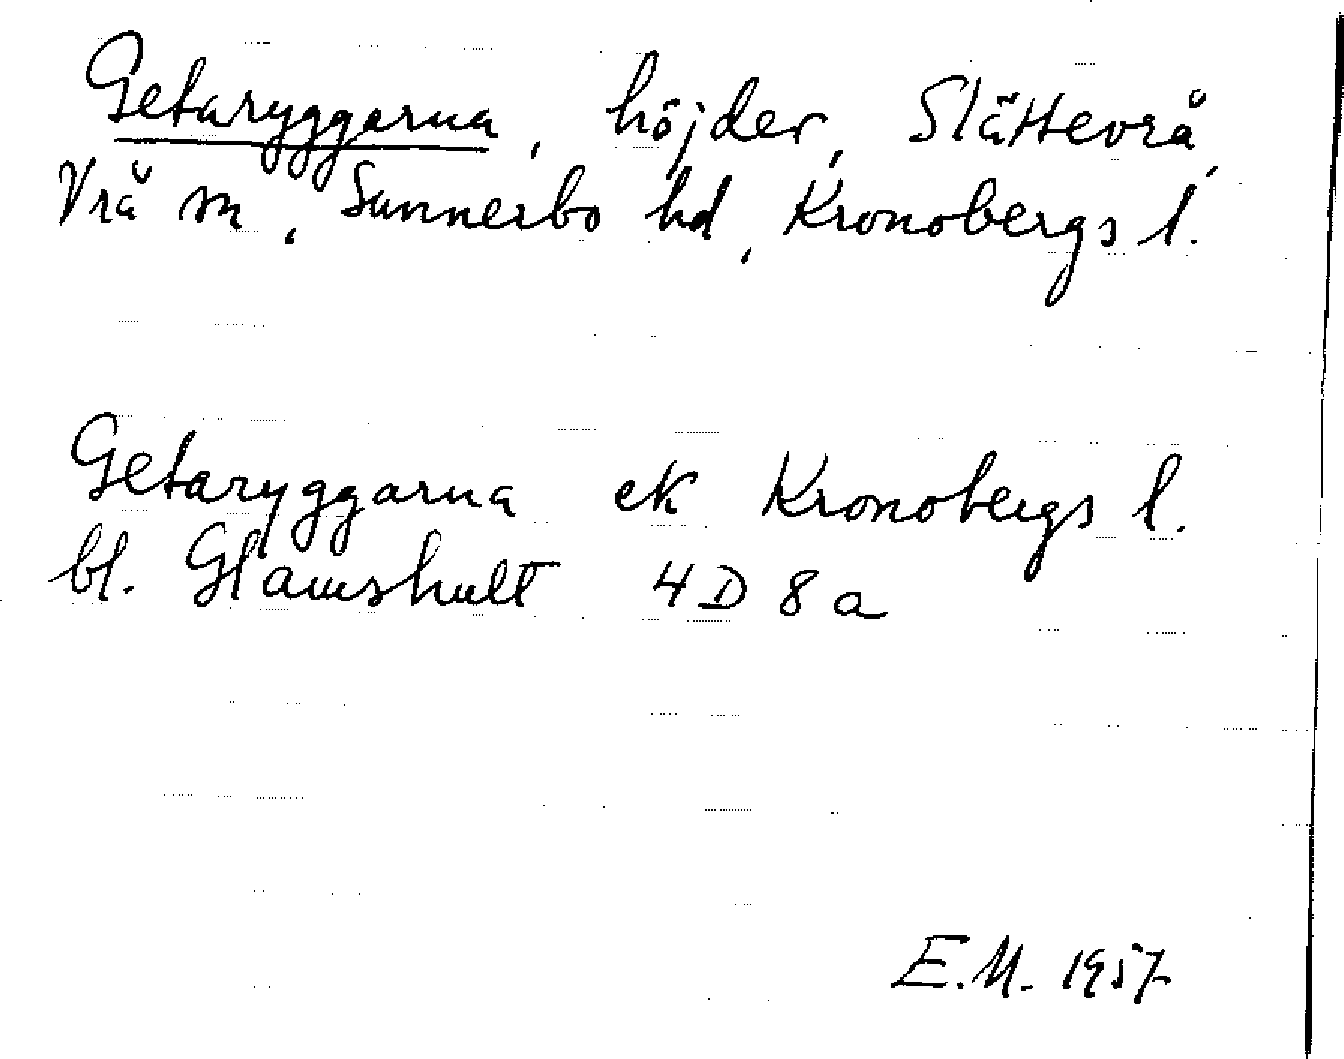 Getaryggarna, höjder, Slättevrå,
Vrå sn, Sunnerbo hd, Kronobergs l.
Getaryggarna ek Kronobergs l.
bl. Glamshult 4D 8a
E.M. 1957